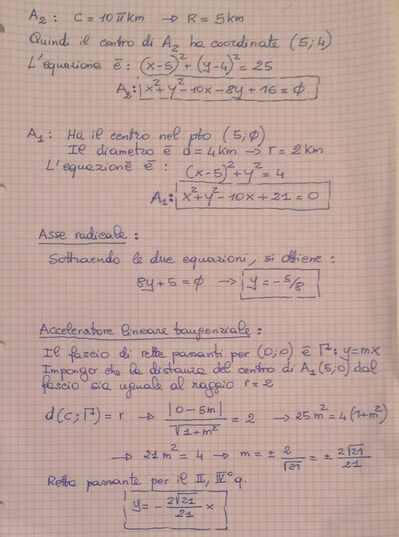 A₂: C = 10πkm → R = 5km
Quindi il centro di A₂ ha coordinate (5;4)
L'equazione è: (x-5)²+(y-4)² = 25
A₂: x²+y²-10x-8y+16=0
A₁: Ha il centro nel pto (5;0)
Il diametro è d=4km → r=2km
L'equazione è:
(x-5)²+y²=4
A₁: x²+y²-10x+21=0
Asse radicale:
Sottraendo le due equazioni, si ottiene:
8y+5=0 → y=-5/8
Acceleratore lineare tangenziale:
Il fascio di rette passanti per (0;0) è Γ: y=mx
Impongo che la distanza del centro di A₁(5;0) dal
fascio sia uguale al raggio r=2
d(C;Γ)=r → |0-5m|/√(1+m²) = 2 → 25m²=4(1+m²)
→ 21m²=4 → m=±2/√21=±2√21/21
Retta passante per il II, IV°q.
y=-2√21/21 x